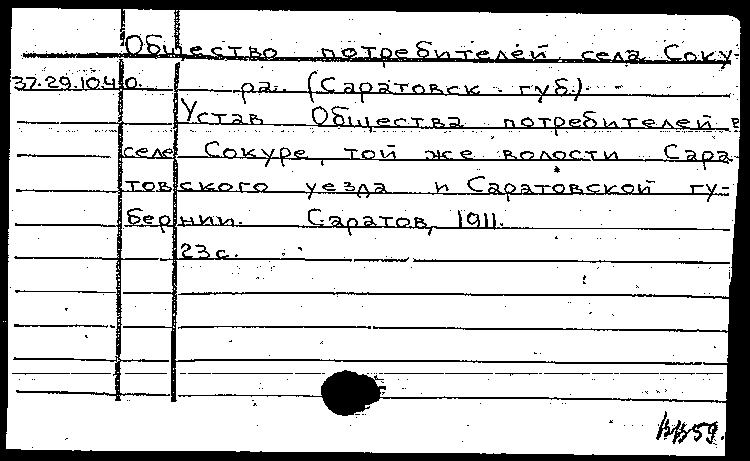 Общество потребителей села Соку-
37.29.1040. ра. (Саратовск. губ.).
Устав Общества потребителей в
селе Сокуре, той же волости, Сара-
товского уезда и Саратовской гу-
бернии. Саратов, 1911.
23 с.
59.